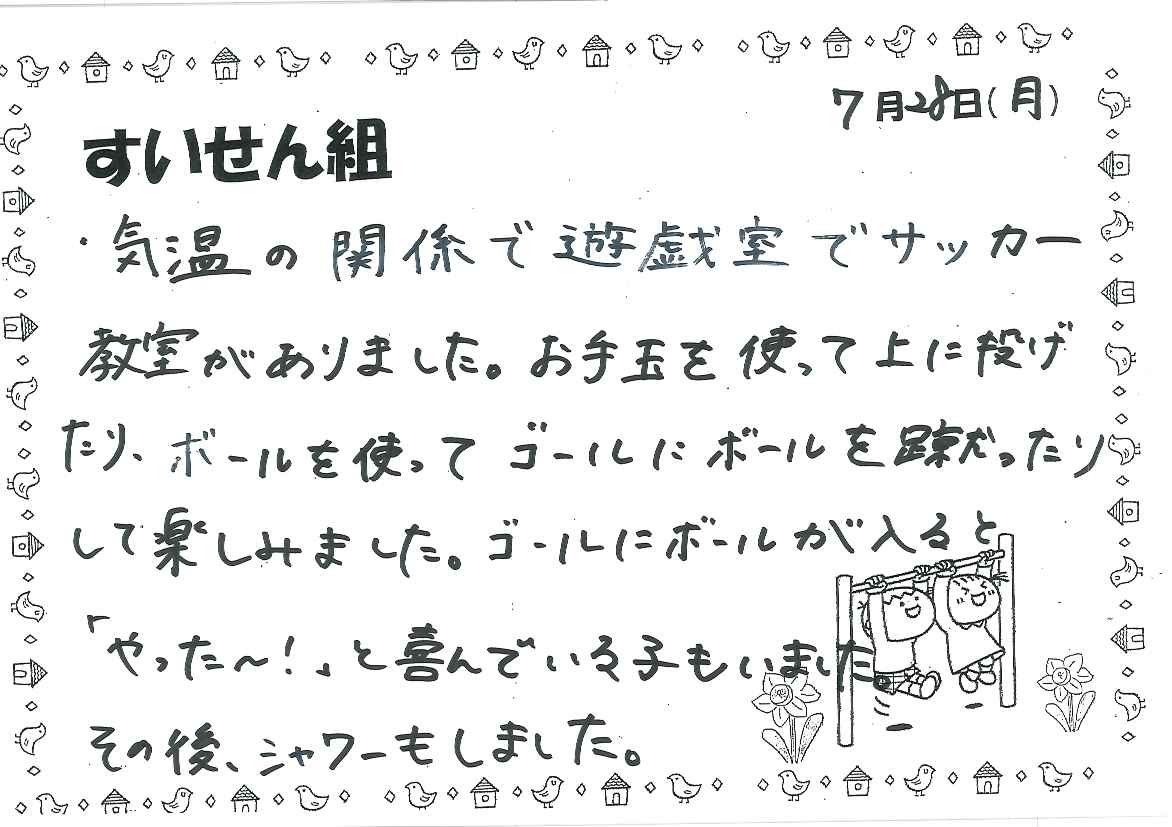 7月28日(月)
すいせん組
・気温の関係で遊戯室でサッカー
教室がありました。お手玉を使って上に投げ
たり、ボールを使ってゴールにボールを蹴だったり
して楽しみました。ゴールにボールが入ると
「やった～！」と喜んでいる子もいました。
その後、シャワーもしました。